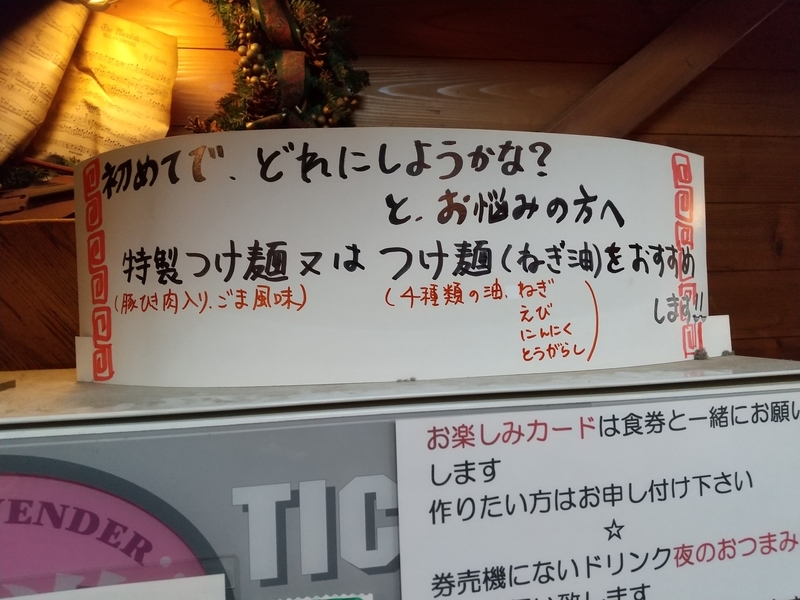 初めてで、どれにしようかな?
と、お悩みの方へ
特製つけ麺又は つけ麺(ねぎ油)をおすすめ
します!!
(豚ひき肉入り、ごま風味)
(4種類の油、ねぎ
えび
にんにく
とうがらし)
お楽しみカードは食券と一緒にお願い
します
作りたい方はお申し付け下さい
☆
券売機にないドリンク夜のおつまみ
VENDER
TIC